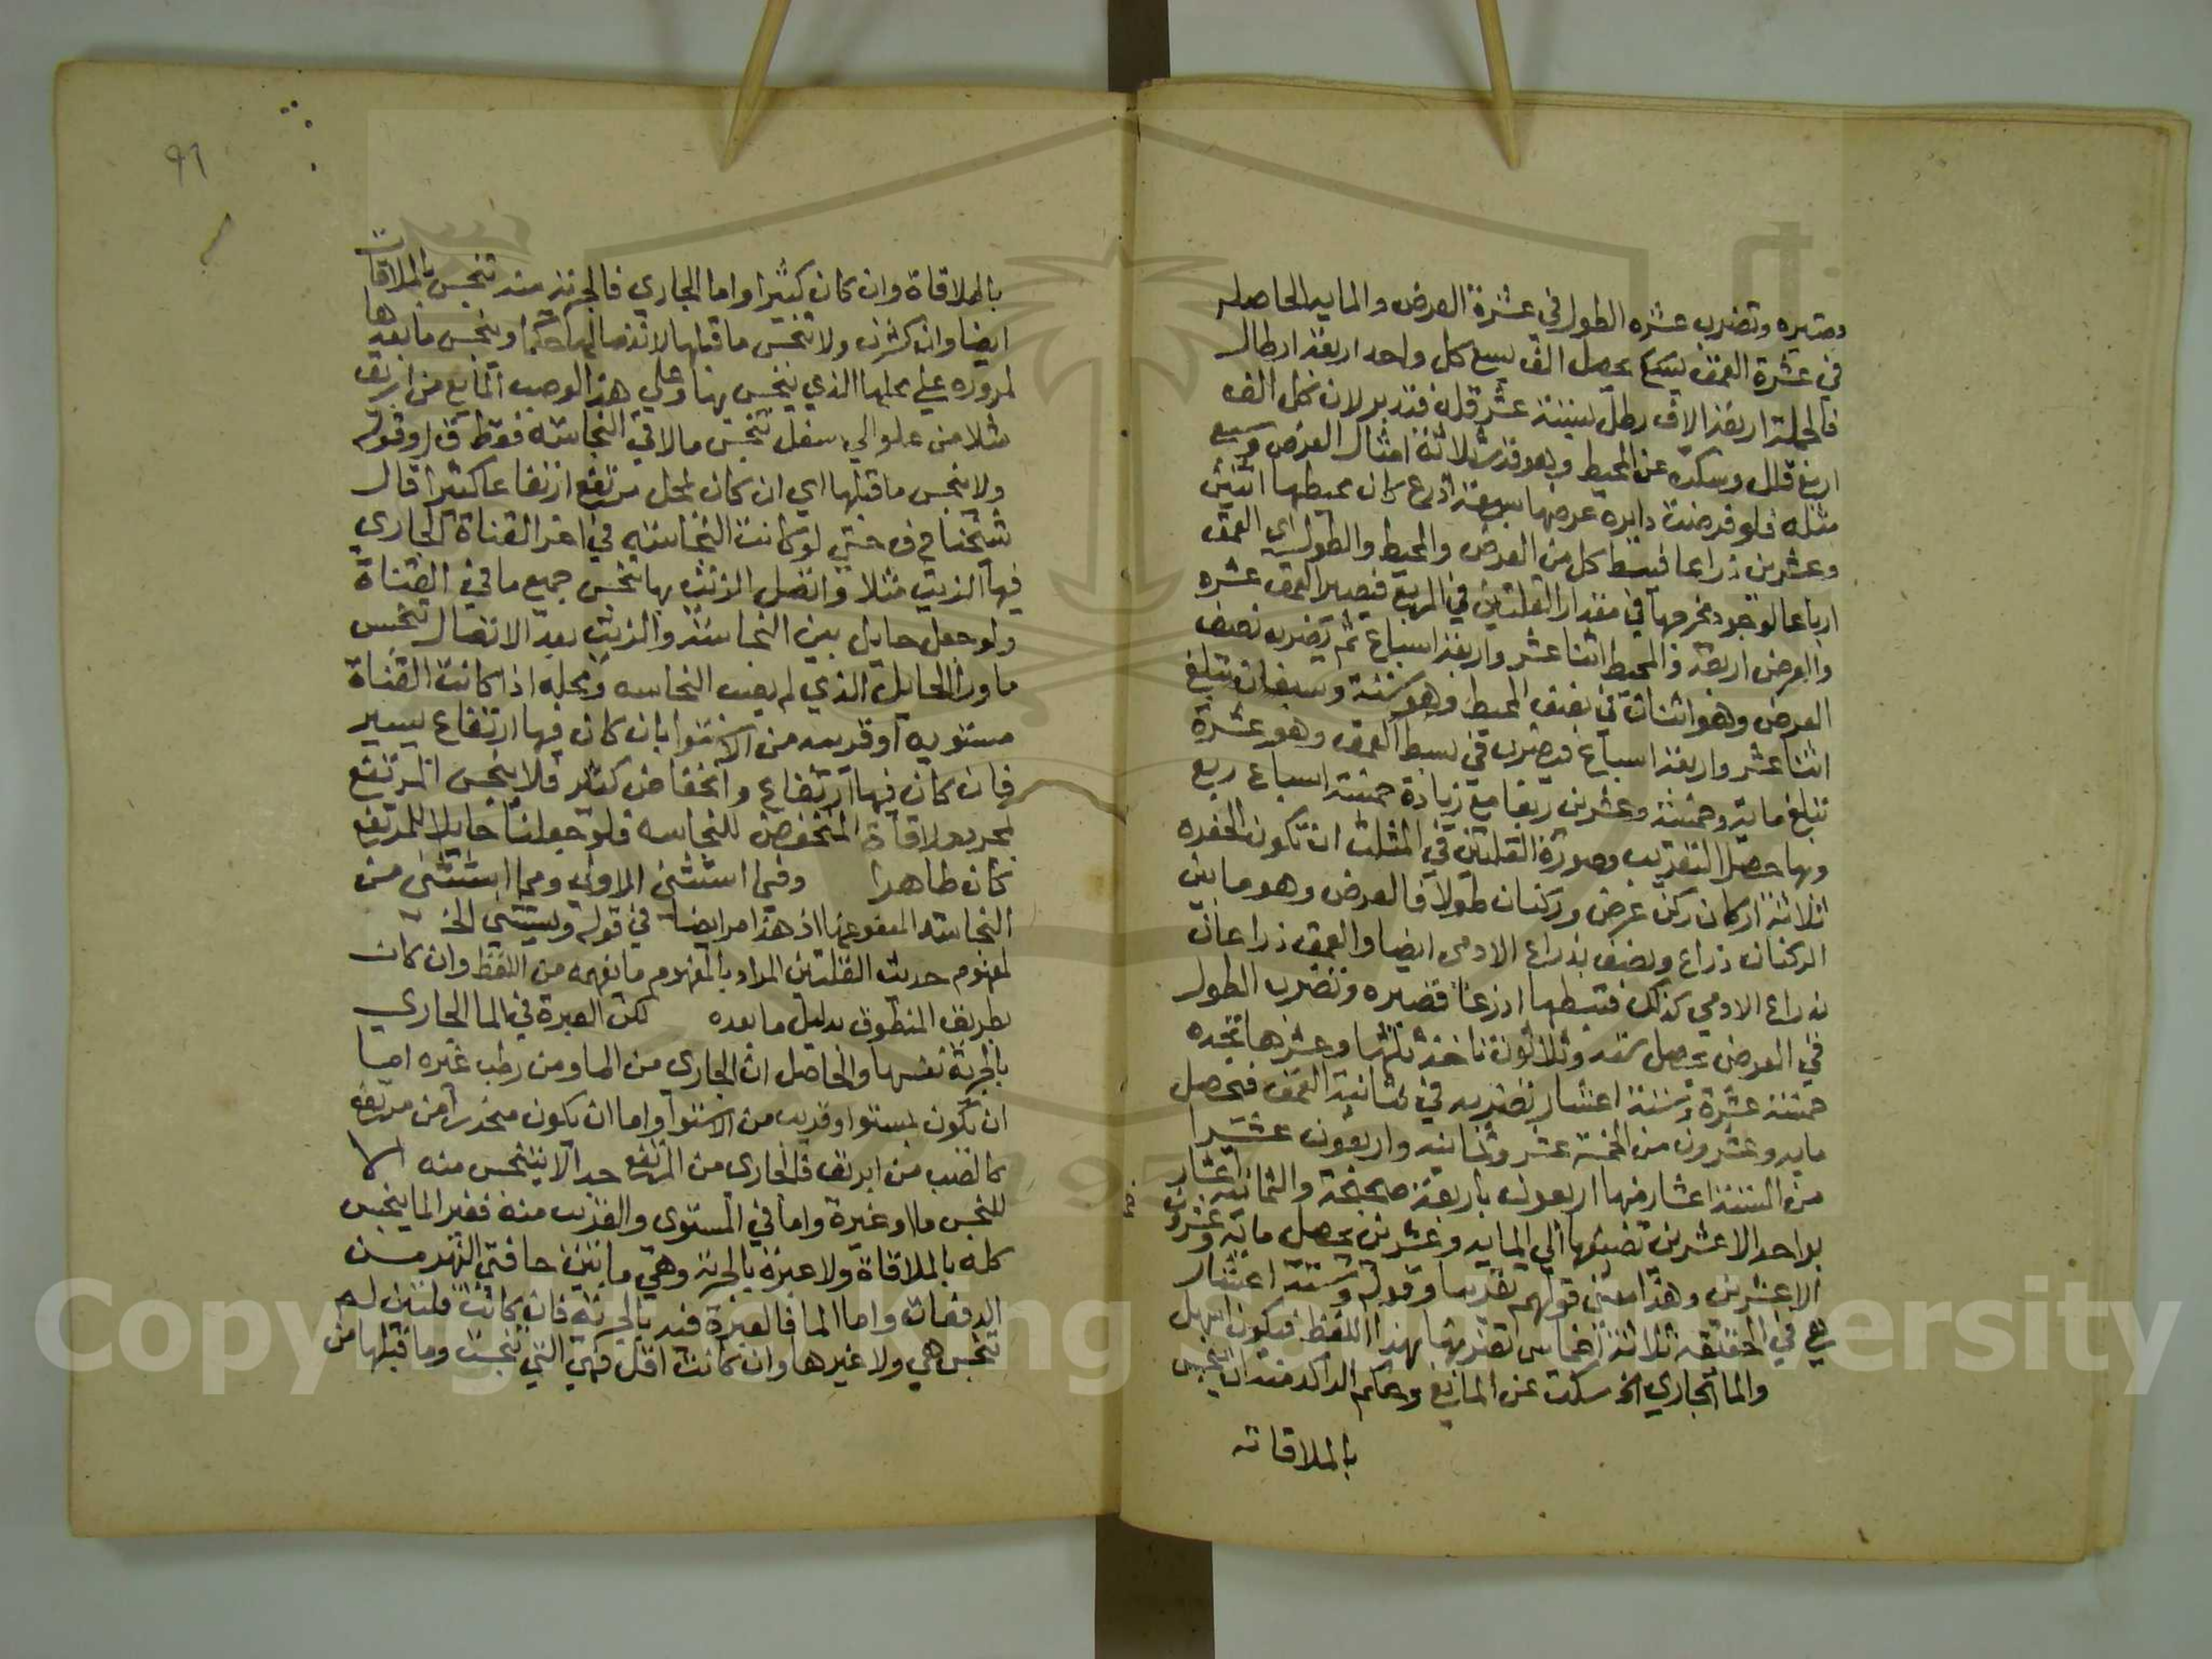 وتضرب عشره الطول في عشرة العرض والمايه الحاصله
في عشرة العمق يحصل الف يسع كل واحد اربعة ارطال
فالجملة اربعة الاف رطل عشر قلل فتدبر لان كل الف
اربع قلل وسكت عن المحيط وهو قدر ثلاثة امثال العرض وسبع
مثله فلو فرضت دايره عرضها سبعة اذرع كان محيطها اثنين
وعشرين ذراعا فبسط كل من العرض والمحيط والطول اي العمق
ارباعا لوجود مخرجها في مقدار القلتين في المربع فيصير العمق عشره
والعرض اربعة والمحيط اثنا عشر واربعة اسباع ثم تضرب نصف
العرض وهو اثنان في نصف المحيط وهو ستة وسبعان تبلغ
اثنا عشر واربعة اسباع فيضرب في بسط العمق وهو عشرة
تبلغ ماية وخمسة وعشرين ربعا مع زيادة خمسة اسباع ربع
وبها حصل التقريب وصورة القلتين في المثلث ان تكون الحفره
ثلاثة اركان ركن عرض وركنان طولا فالعرض وهو ما بين
الركنان ذراع ونصف بذراع الادمي ايضا والعمق ذراعان
بذراع الادمي كذلك فتبسطها اذرعا قصيره وتضرب الطول
في العرض يحصل سته وثلاثون تاخذ ثلثها وعشرها تجده
خمسة عشرة وستة اعشار تضربه في ثمانية العمق فتحصل
مايه وعشرون من الخمسة عشر وثمانيه واربعون عشرا
من الستة اعشار منها اربعون باربعة صحيحة والثمانية اعشار
بواحد الا عشرين تضيفها الي المايه وعشرين يحصل ماية وخمسة وعشرون
الا عشرين وهذا معني قولهم تقريبا وقوله وستة اعشار
هي في الحقيقه ثلاثة اخماس بهذا اللفظ فيكون اسهل
والما الجاري الخ سكت عن المايع وحكم الراكد منه ان ينجس
بالملاقاته
٩٦
بالملاقاة وان كان كثيرا واما الجاري فالجرية منه تنجس بالملاقات
ايضا وان كثرت ولا تنجس ما قبلها لانفصالها حكما وينجس ما بعدها
لمروره علي محلها الذي ينجس بها وعلي هذا لو صب المايع من ابريق
مثلا من علو الي سفل تنجس مالاقي النجاسة فقط ق ل وقوله
ولا ينجس ما قبلها اي ان كان لمحل مرتفع ارتفاعا كثيرا قال
شيخنا م ف حتي لو كانت النجاسة في اخر القناة الجاري
فيها الزيت مثلا واتصل الزيت بها تنجس جميع ما في القناة
ولو جعل حايل بين النجاسة والزيت بعد الاتصال تنجس
ما ورا الحايل الذي لم يصب النجاسه ومحله اذا كانت القناة
مستويه او قريبه من الاستوا بان كان فيها ارتفاع يسير
فان كان فيها ارتفاع وانخفاض كثير فلا ينجس المرتفع
بمجرد ملاقاة المنخفض للنجاسه فلو جعلنا حايلا للمرتفع
كان طاهرا وفيما استثني الاولي ومما استثني من
النجاسه المعفو عنها اذ هذا مر ايضا في قوله ويستثني الخ
لمفهوم حديث القلتين المراد بالمفهوم ما نفهمه من اللفظ وان كان
بطريق المنطوق بدليل ما بعده لكن العبرة في الما الجاري
بالجرية نفسها والحاصل ان الجاري من الما ومن رطب غيره اما
ان يكون بمستوا او قريب من الاستوا واما ان يكون منحدرا من مرتفع
كالصب من ابريق فالجاري من المرتفع جدا لا يتنجس منه الا
للنجس ما او غيرة واما في المستوي والقريب منه فغير الما ينجس
كله بالملاقاة ولا عبرة بالجرية وهي ما بين حافتي النهر من
الدفعات واما الما فالعبرة فيه بالجرية فان كانت قلتين لم
تنجس هي ولا غيرها وان كانت اقل فهي التي تنجست وما قبلها من
Copyright © King Saud University